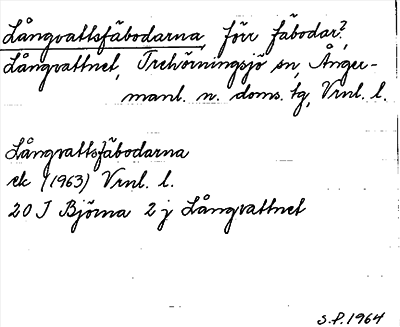 Långvattsfäbodarna, förr fäbodar?,
Långvattnet, Trehörningsjö sn, Ånger-
manl. n. doms. tg, Vrnl. l.
Långvattsfäbodarna
ek (1963) Vrnl. l.
20 J Björna 2 j Långvattnet
S.P. 1964